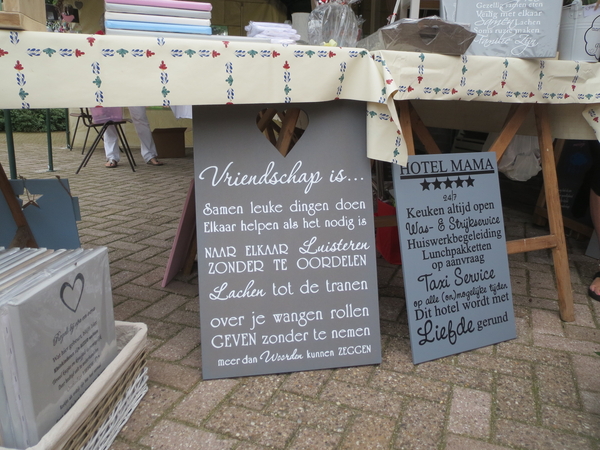 Vriendschap is...
Samen leuke dingen doen
Elkaar helpen als het nodig is
NAAR ELKAAR Luisteren
ZONDER TE OORDELEN
Lachen tot de tranen
over je wangen rollen
GEVEN zonder te nemen
meer dan Woorden kunnen ZEGGEN
HOTEL MAMA
24/7
Keuken altijd open
Was- & Strijkservice
Huiswerkbegeleiding
Lunchpakketten
op aanvraag
Taxi Service
op alle (on)mogelijke tijden
Dit hotel wordt met
Liefde gerund